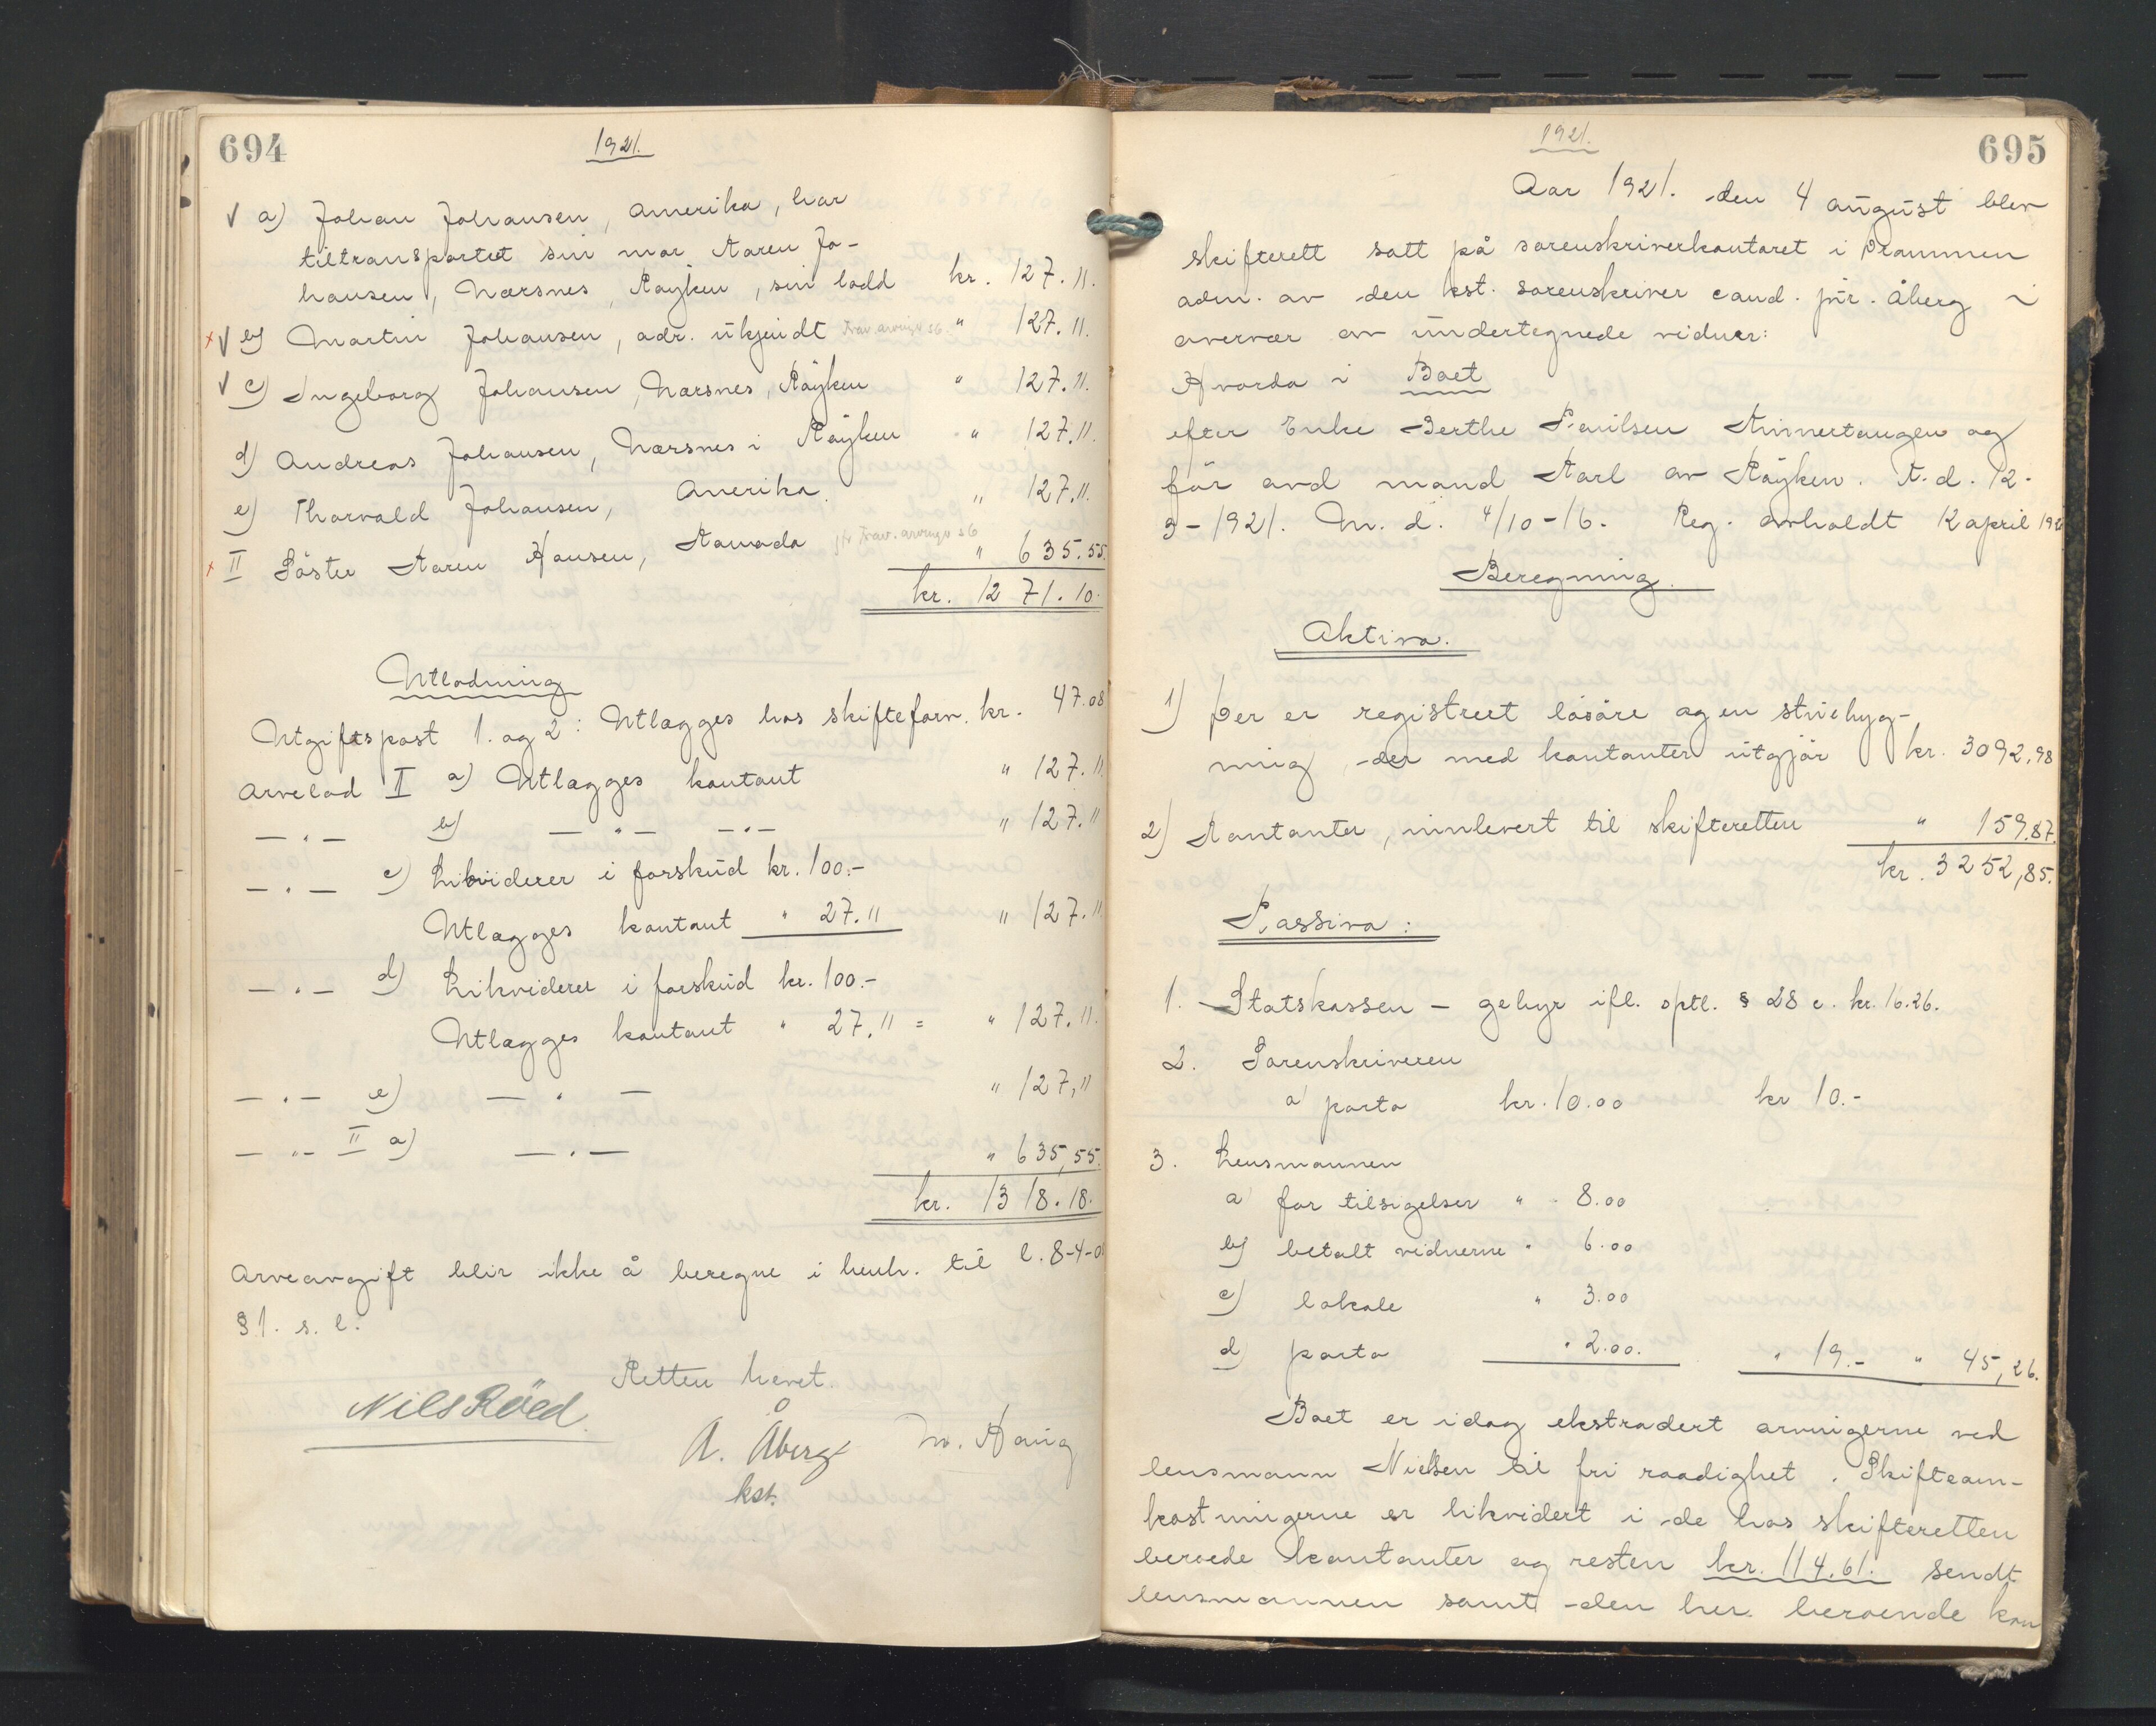 694
1921.
a) Johan Johansen, Amerika, har
tiltransportert sin mor Karen Jo-
hansen, Nærsnes, Røyken, sin lodd kr. 127.11.
b) Martin Johansen, adr. ukjendt " 127.11.
c) Ingeborg Johansen, Nærsnes, Røyken " 127.11.
d) Andreas Johansen, Nærsnes i Røyken " 127.11.
e) Thorvald Johansen, Amerika. " 127.11.
II Søster Karen Hansen, Kanada " 635.55
kr. 1271.10.
Utlodning
Utgiftspost 1. og 2: Utlægges hos skifteforv. kr. 47.08
Arvelod I a) Utlægges kontant " 127.11
— " — b) — " — — " — " 127.11
— " — c) Likviderer i forskud kr. 100.-
Utlægges kontant " 27.11 " 127.11
— " — d) Likviderer i forskud kr. 100.-
Utlægges kontant " 27.11 = " 127.11.
— " — e) — " — " 127,11
— " — II a) — " — " 635,55.
kr. 1318.18.
Arveavgift blir ikke å beregne i henh. til l. 8-4-0
§1. s. l.
Retten hevet.
Nils Röed
A. Åberg
kst.
M. Haug
1921.
695
Aar 1921. den 4 august blev
skifterett satt på sorenskriverkontoret i Drammen
adm. av den kst. sorenskriver cand. jur. Åberg i
overvær av undertegnede vidner:
Hvorda i Boet
efter Enke Berthe Paulsen Kinnertangen og
før avd mand Karl av Røyken. K. d. 12-
3-1921. M. d. 4/10-16. Reg. avholdt 12 april 192
Beregning.
Aktiva.
1) Der er registrert løsøre og en stuebyg-
ning, der med kontanter utgjør kr. 3092,98
2) Kontanter, innlevert til skifteretten " 159.87.
kr. 3252,85.
Passiva:
1. Statskassen – gebyr ifl. sptl. § 28 c. kr. 16.26.
2. Sorenskriveren
a porto kr. 10.00 kr 10.-
3. Lensmannen
a for tilsigelser " 8.00
b) betalt vidnerne " 6.00
c) lokale " 3.00
d) porto " 2.00. " 19.- " 45,26.
Boet er idag ekstradert arvingerne ved
lensmann Nielsen til fri raadighet. Skifteom-
kostningerne er likvidert i de hos skifteretten
beroede kontanter og resten kr. 114.61. sendt
lensmannen samt den her beroende kon